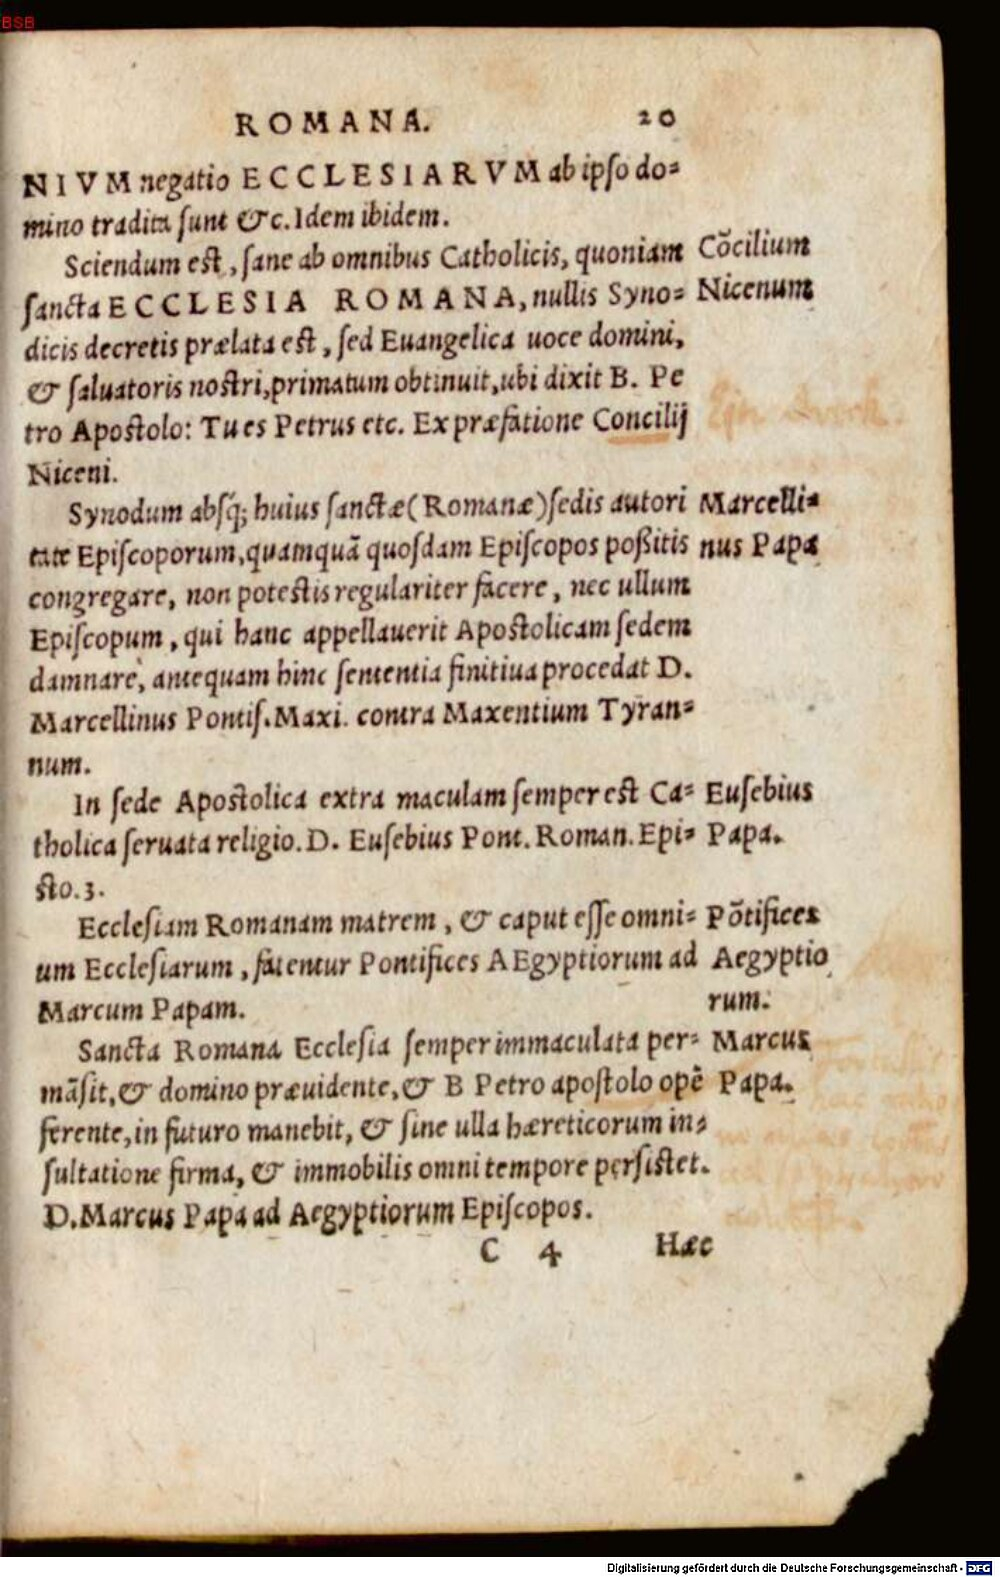 BSB
ROMANA. 20
NIVM negatio ECCLESIARVM ab ipſo do=
mino tradita ſunt &c. Idem ibidem.
Sciendum eſt, ſane ab omnibus Catholicis, quoniam Cõcilium
ſancta ECCLESIA ROMANA, nullis Syno= Nicenum
dicis decretis prælata eſt, ſed Euangelica uoce domini,
& ſaluatoris noſtri, primatum obtinuit, ubi dixit B. Pe
tro Apoſtolo: Tu es Petrus etc. Ex præfatione Concilij
Niceni.
Synodum abſq; huius ſanctæ (Romanæ) ſedis autori Marcelli=
tate Epiſcoporum, quamquã quoſdam Epiſcopos poßitis nus Papa
congregare, non poteſtis regulariter facere, nec ullum
Epiſcopum, qui hanc appellauerit Apoſtolicam ſedem
damnare, antequam hinc ſententia finitiua procedat D.
Marcellinus Pontif. Maxi. contra Maxentium Tyran=
num.
In ſede Apoſtolica extra maculam ſemper eſt Ca= Euſebius
tholica ſeruata religio. D. Euſebius Pont. Roman. Epi= Papa.
ſto. 3.
Eccleſiam Romanam matrem, & caput eſſe omni= Põtifices
um Eccleſiarum, fatentur Pontifices AEgyptiorum ad Aegyptio
Marcum Papam. rum.
Sancta Romana Eccleſia ſemper immaculata per= Marcus
mãſit, & domino præuidente, & B Petro apoſtolo opẽ Papa.
ferente, in futuro manebit, & ſine ulla hæreticorum in=
ſultatione firma, & immobilis omni tempore perſiſtet.
D. Marcus Papa ad Aegyptiorum Epiſcopos.
C 4 Hæc
Digitalisierung gefördert durch die Deutsche Forschungsgemeinschaft - DFG